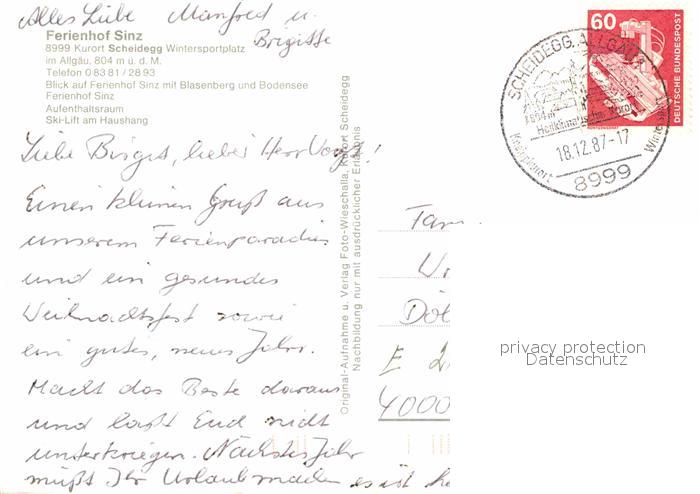 Alles Liebe Manfred u.
Brigitte
Ferienhof Sinz
8999 Kurort Scheidegg Wintersportplatz
im Allgäu, 804 m ü. d. M.
Telefon 0 83 81 / 28 93
Blick auf Ferienhof Sinz mit Blasenberg und Bodensee
Ferienhof Sinz
Aufenthaltsraum
Ski-Lift am Haushang
Liebe Birgit, lieber Herr Voigt!
Einen kleinen Gruß aus
unserem Ferienparadies
und ein gesundes
Weihnachtsfest sowie
ein gutes, neues Jahr.
Macht das Beste daraus
und laßt Euch nicht
unterkriegen. Nächstes Jahr
müßt Ihr Urlaub machen es ist
Original-Aufnahme u. Verlag Foto-Wieschalla, Kurort Scheidegg
Nachbildung nur mit ausdrücklicher Erlaubnis
60
DEUTSCHE BUNDESPOST
SCHEIDEGG, ALLGÄU
Heilklimatischer Kurort
Kneippkurort
18.12.87-17
8999
Fam.
Döl
4000
privacy protection
Datenschutz